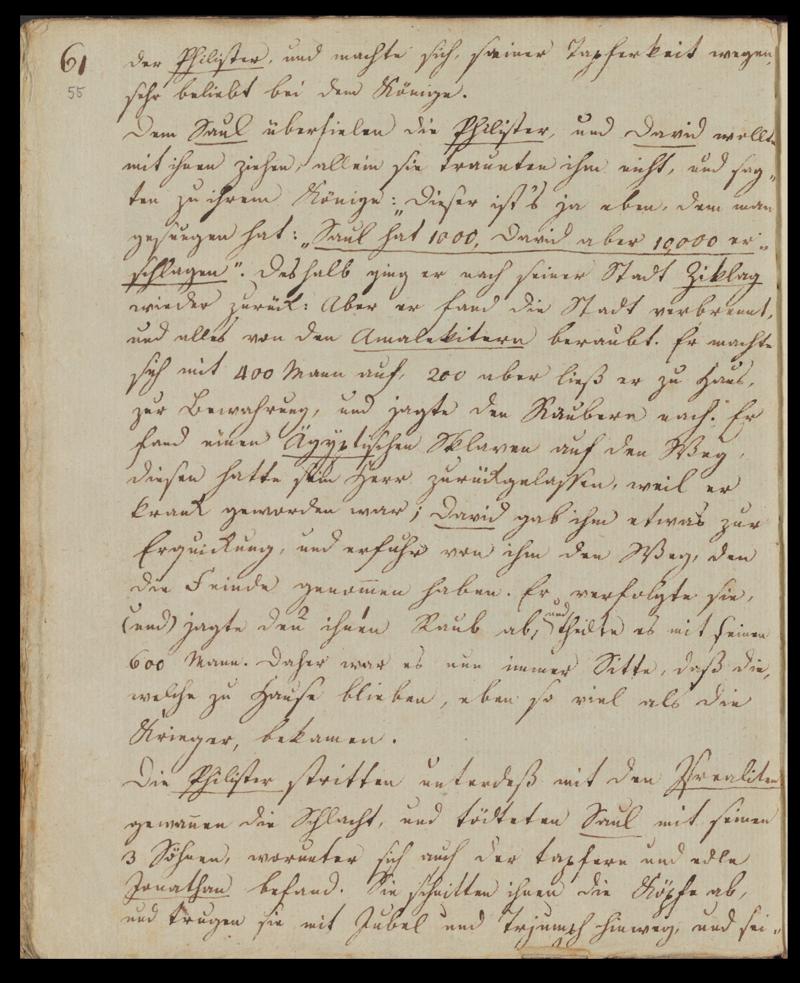 61
55
der Philister, und machte sich, seiner Tapferkeit wegen,
sehr beliebt bei dem Könige.
Dem Saul überfielen die Philister, und David wollte
mit ihnen ziehen, allein sie trauten ihm nicht, und sag„
ten zu ihrem Könige: „Dieser ist's ja eben, dem man
gesungen hat: „Saul hat 1000, David aber 10,000 er„
schlagen". Deshalb ging er nach seiner Stadt Ziklag
wieder zurück: Aber er fand die Stadt verbrennt,
und alles von den Amalekitern beraubt. Er machte
sich mit 400 Mann auf, 200 aber ließ er zu Haus,
zur Bewahrung, und jagte den Raubern nach. Er
fand einen Ägyptischen Sklaven auf den Weg,
diesen hatte sein Herr zurückgelassen, weil er
krank geworden war; David gab ihm etwas zur
Erquickung, und erfuhr von ihm den Weg, den
die Feinde genom̅en haben. Er verfolgte sie,
(und) jagte den 2 ihnen 1 Raub ab, und theilte es mit seinen
600 Mann. Daher war es nun immer Sitte, daß die,
welche zu Hause blieben, eben so viel als die
Krieger, bekamen.
Die Philister stritten unterdeß mit den Israeliten
gewan̅en die Schlacht, und tödteten Saul mit seinen
3 Söhnen, worunter sich auch der tapfere und edle
Jonathan befand. Sie schnitten ihnen die Köpfe ab,
und trugen sie mit Jubel und Trjumph hinweg, und sei„